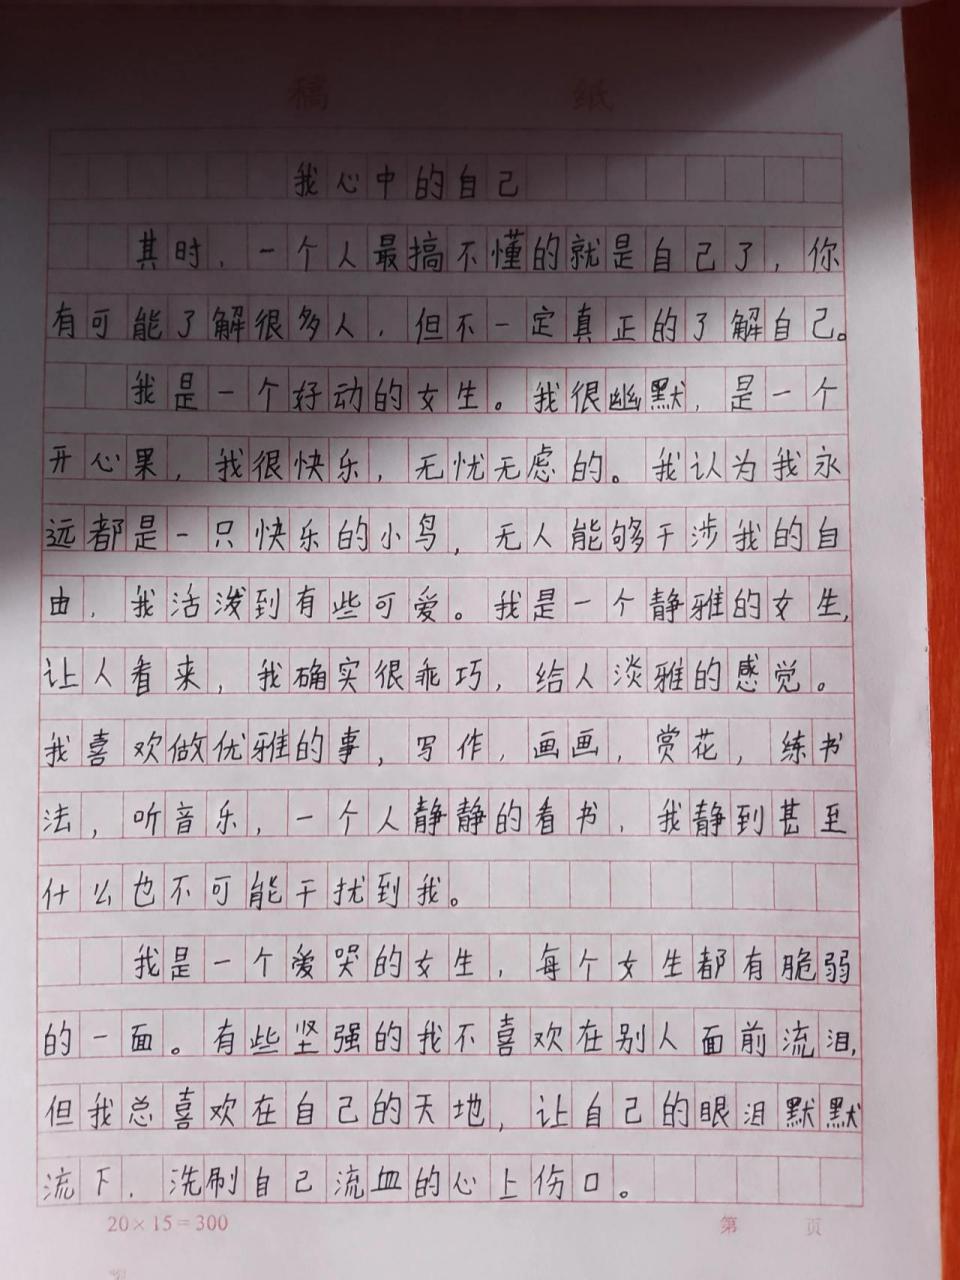 稿 纸
我心中的自己
其时，一个人最搞不懂的就是自己了，你
有可能了解很多人，但不一定真正的了解自己。
我是一个好动的女生。我很幽默，是一个
开心果，我很快乐，无忧无虑的。我认为我永
远都是一只快乐的小鸟，无人能够干涉我的自
由，我活泼到有些可爱。我是一个静雅的女生，
让人看来，我确实很乖巧，给人淡雅的感觉。
我喜欢做优雅的事，写作，画画，赏花，练书
法，听音乐，一个人静静的看书，我静到甚至
什么也不可能干扰到我。
我是一个爱哭的女生，每个女生都有脆弱
的一面。有些坚强的我不喜欢在别人面前流泪，
但我总喜欢在自己的天地，让自己的眼泪默默
流下，洗刷自己流血的心上伤口。
20×15=300 第 页